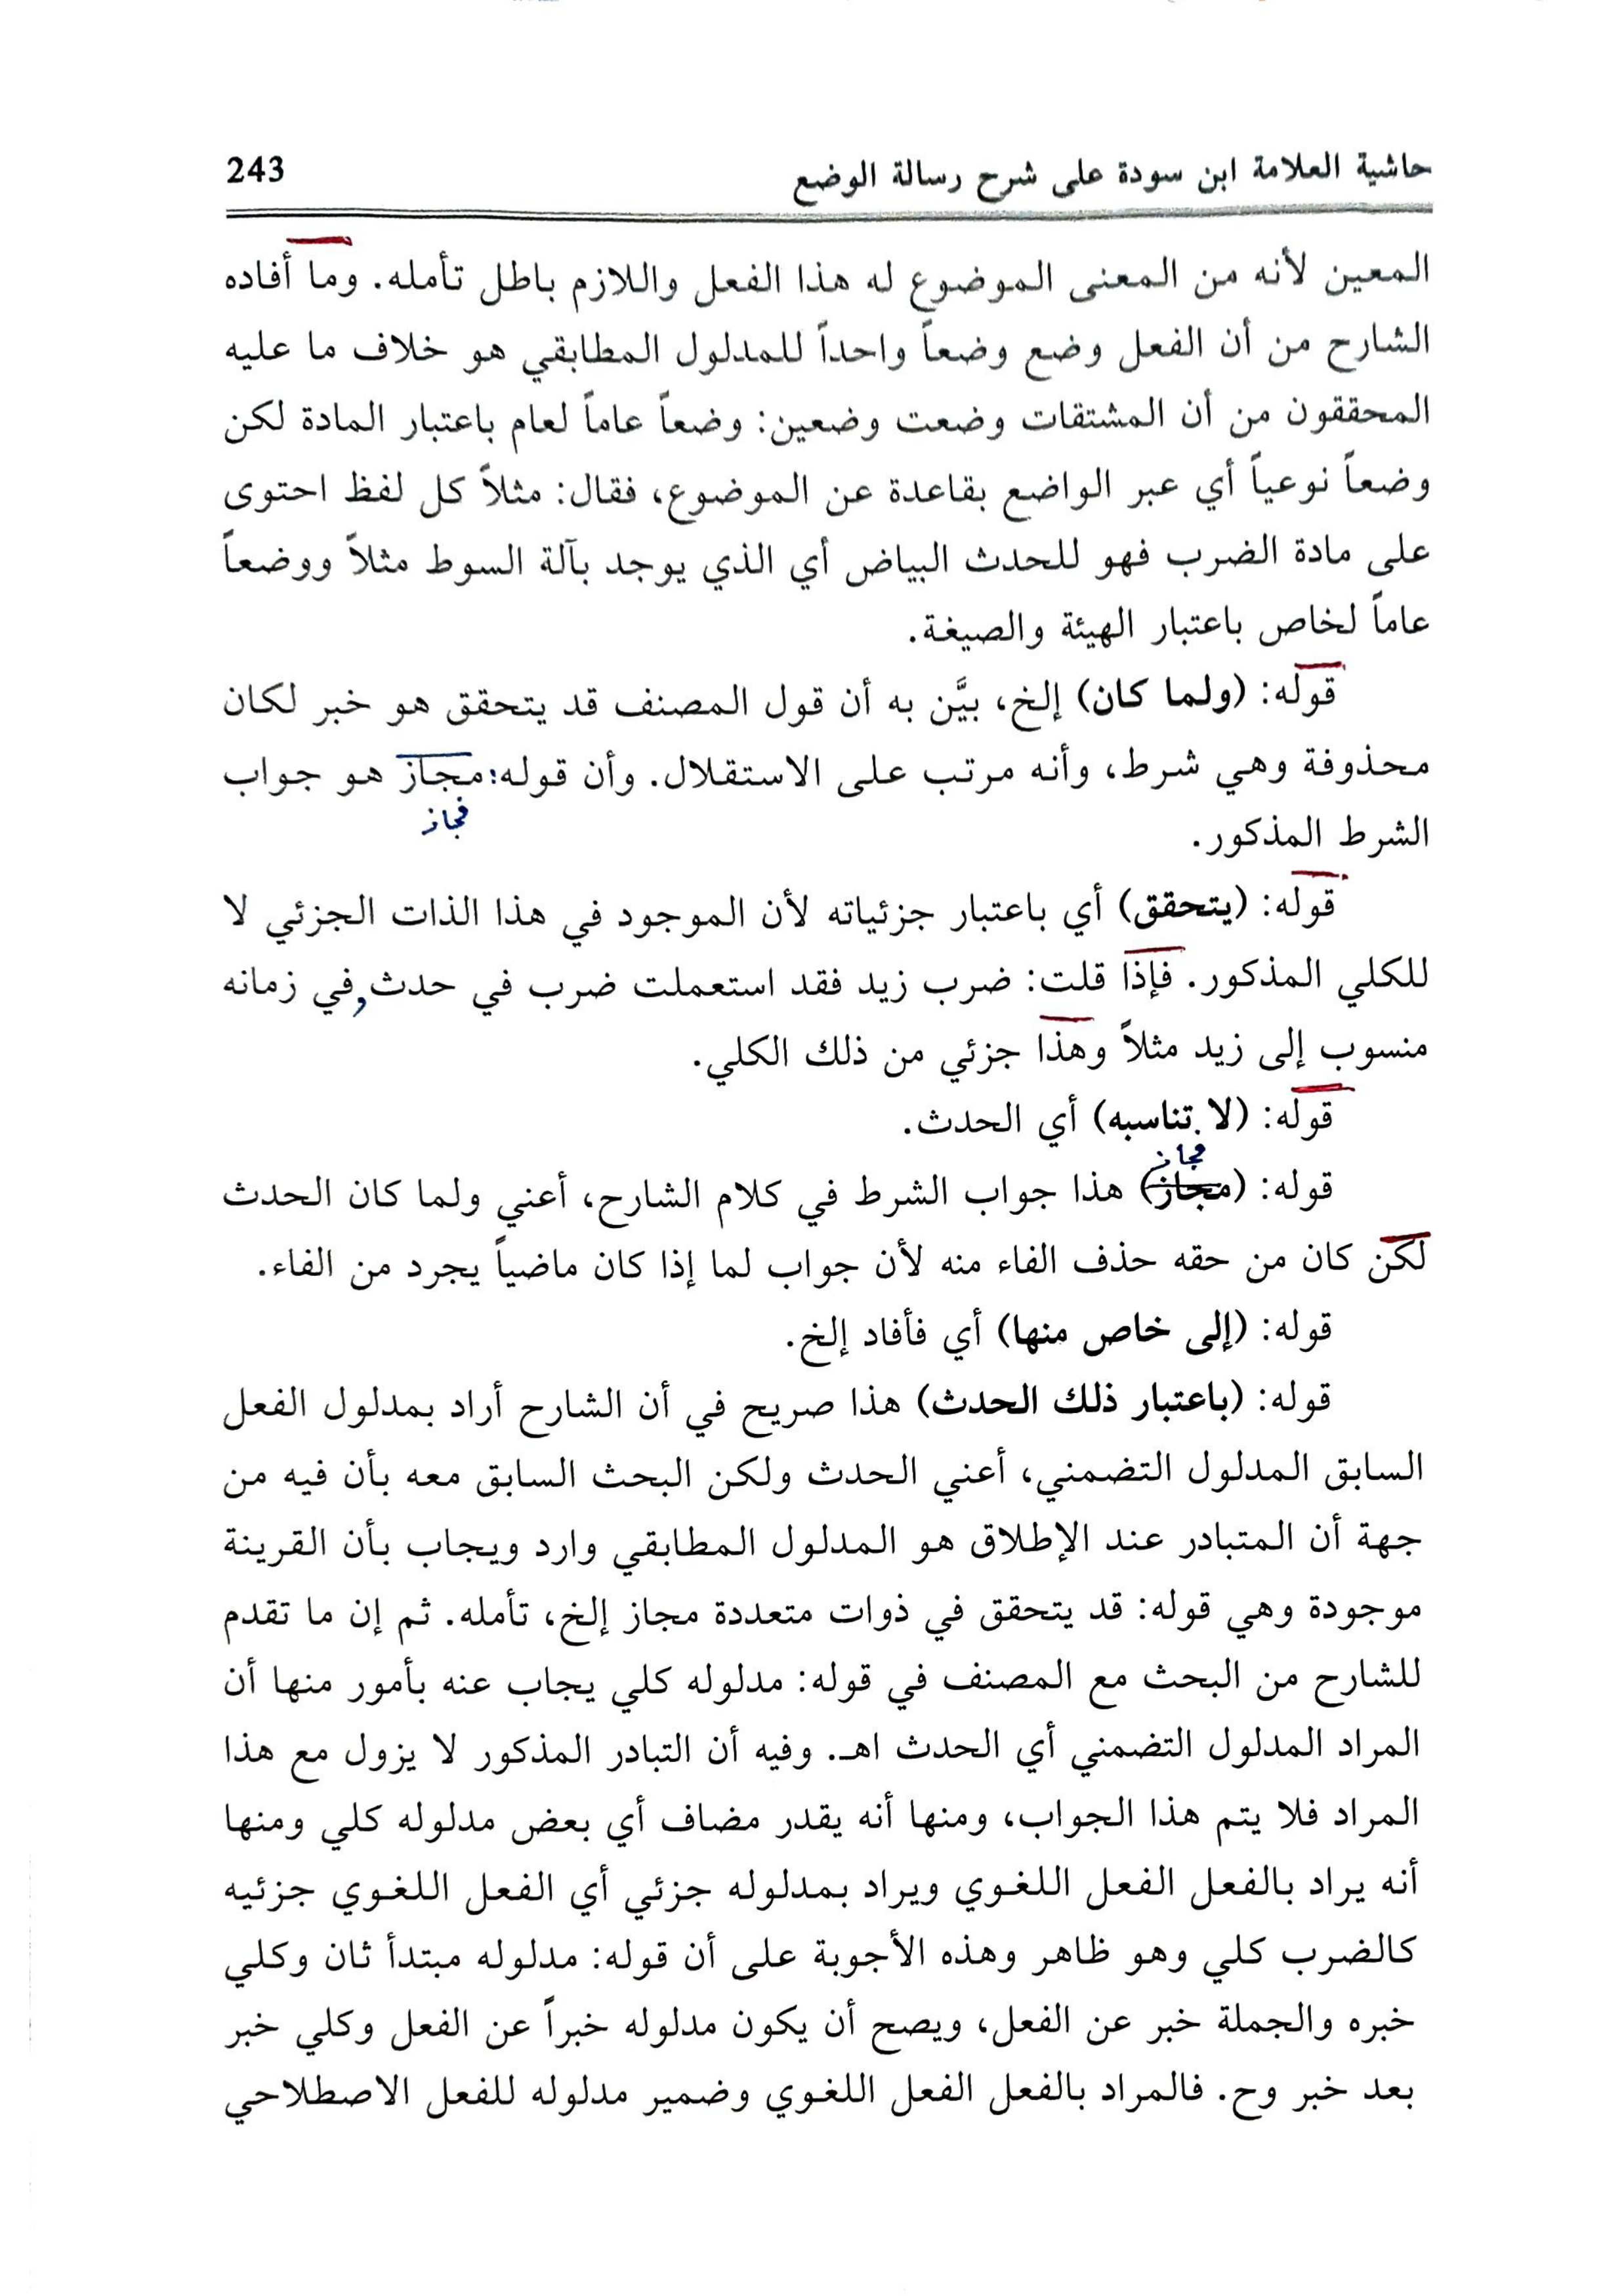 حاشية العلامة ابن سودة على شرح رسالة الوضع 243
المعين لأنه من المعنى الموضوع له هذا الفعل واللازم باطل تأمله. وما أفاده
الشارح من أن الفعل وضع وضعاً واحداً للمدلول المطابقي هو خلاف ما عليه
المحققون من أن المشتقات وضعت وضعين: وضعاً عاماً لعام باعتبار المادة لكن
وضعاً نوعياً أي عبر الواضع بقاعدة عن الموضوع، فقال: مثلاً كل لفظ احتوى
على مادة الضرب فهو للحدث البياض أي الذي يوجد بآلة السوط مثلاً ووضعاً
عاماً لخاص باعتبار الهيئة والصيغة.
قوله: (ولما كان) إلخ، بيَّن به أن قول المصنف قد يتحقق هو خبر لكان
محذوفة وهي شرط، وأنه مرتب على الاستقلال. وأن قوله: مجاز هو جواب
فجاز
الشرط المذكور.
قوله: (يتحقق) أي باعتبار جزئياته لأن الموجود في هذا الذات الجزئي لا
للكلي المذكور. فإذا قلت: ضرب زيد فقد استعملت ضرب في حدث و في زمانه
منسوب إلى زيد مثلاً وهذا جزئي من ذلك الكلي.
قوله: (لا تناسبه) أي الحدث.
فجاز
قوله: (مجاز) هذا جواب الشرط في كلام الشارح، أعني ولما كان الحدث
لكن كان من حقه حذف الفاء منه لأن جواب لما إذا كان ماضياً يجرد من الفاء.
قوله: (إلى خاص منها) أي فأفاد إلخ.
قوله: (باعتبار ذلك الحدث) هذا صريح في أن الشارح أراد بمدلول الفعل
السابق المدلول التضمني، أعني الحدث ولكن البحث السابق معه بأن فيه من
جهة أن المتبادر عند الإطلاق هو المدلول المطابقي وارد ويجاب بأن القرينة
موجودة وهي قوله: قد يتحقق في ذوات متعددة مجاز إلخ، تأمله. ثم إن ما تقدم
للشارح من البحث مع المصنف في قوله: مدلوله كلي يجاب عنه بأمور منها أن
المراد المدلول التضمني أي الحدث اهـ. وفيه أن التبادر المذكور لا يزول مع هذا
المراد فلا يتم هذا الجواب، ومنها أنه يقدر مضاف أي بعض مدلوله كلي ومنها
أنه يراد بالفعل الفعل اللغوي ويراد بمدلوله جزئي أي الفعل اللغوي جزئيه
كالضرب كلي وهو ظاهر وهذه الأجوبة على أن قوله: مدلوله مبتدأ ثان وكلي
خبره والجملة خبر عن الفعل، ويصح أن يكون مدلوله خبراً عن الفعل وكلي خبر
بعد خبر وح. فالمراد بالفعل الفعل اللغوي وضمير مدلوله للفعل الاصطلاحي